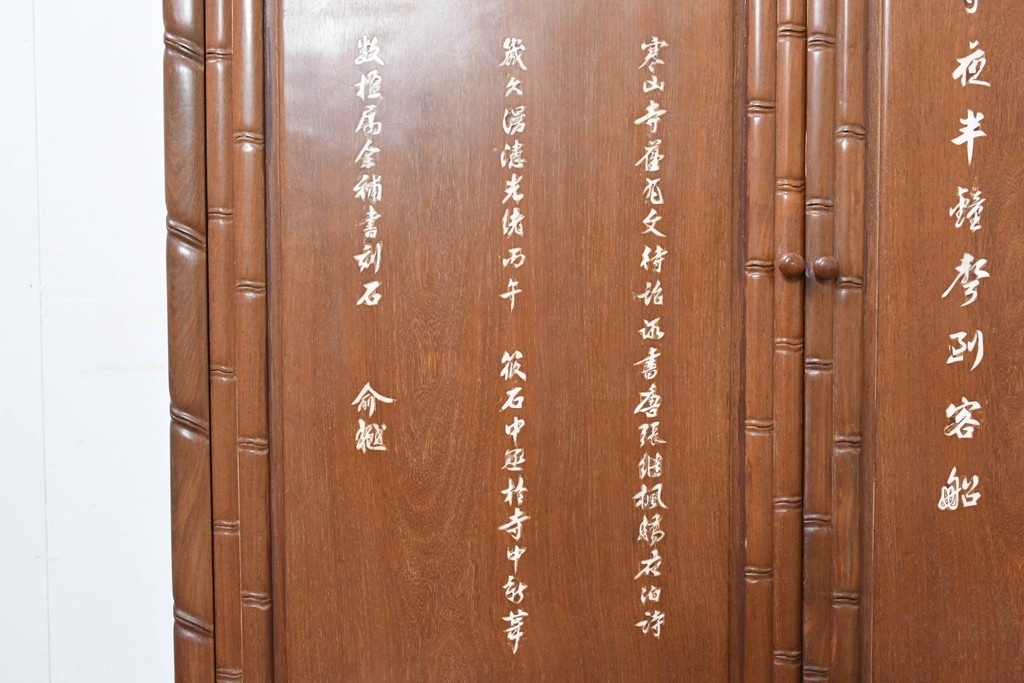 夜半鐘聲到客船
寒山寺舊有文待詔所書唐張繼楓橋夜泊詩
歲久漫漶光緒丙午 筱石中丞於寺中新葺
數楹屬余補書刻石 俞樾